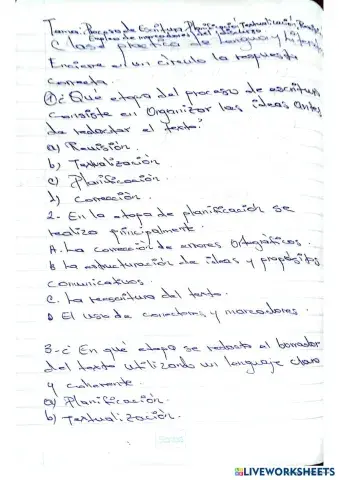 Tema: Proceso de Escritura, Planificación, Textualización, Revisión
Empleo de marcadores del discurso
Clase práctica de Lengua y Literatura
Encierre en un círculo la respuesta
correcta.
① ¿Qué etapa del proceso de escritura
consiste en organizar las ideas antes
de redactar el texto?
a) Revisión.
b) Textualización.
c) Planificación.
d) Corrección.
2- En la etapa de planificación se
realiza principalmente.
A. La corrección de errores Ortográficos.
B La estructuración de ideas y propósitos
comunicativos.
C. La reescritura del texto.
D El uso de conectores y marcadores.
3-¿ En qué etapa se redacta el borrador
del texto utilizando un lenguaje claro
y coherente.
a) Planificación.
b) Textualización.
LIVEWORKSHEETS